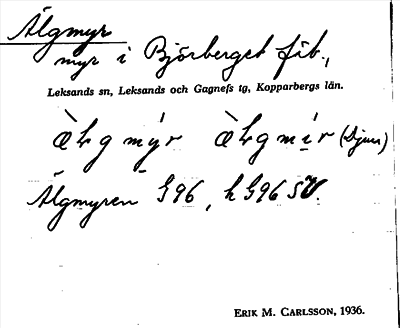 Älgmyr
myr i Björberget fäb.,
Leksands sn, Leksands och Gagnefs tg, Kopparbergs län.
Älgmyren G96, h G96 SV.
ERIK M. CARLSSON, 1936.